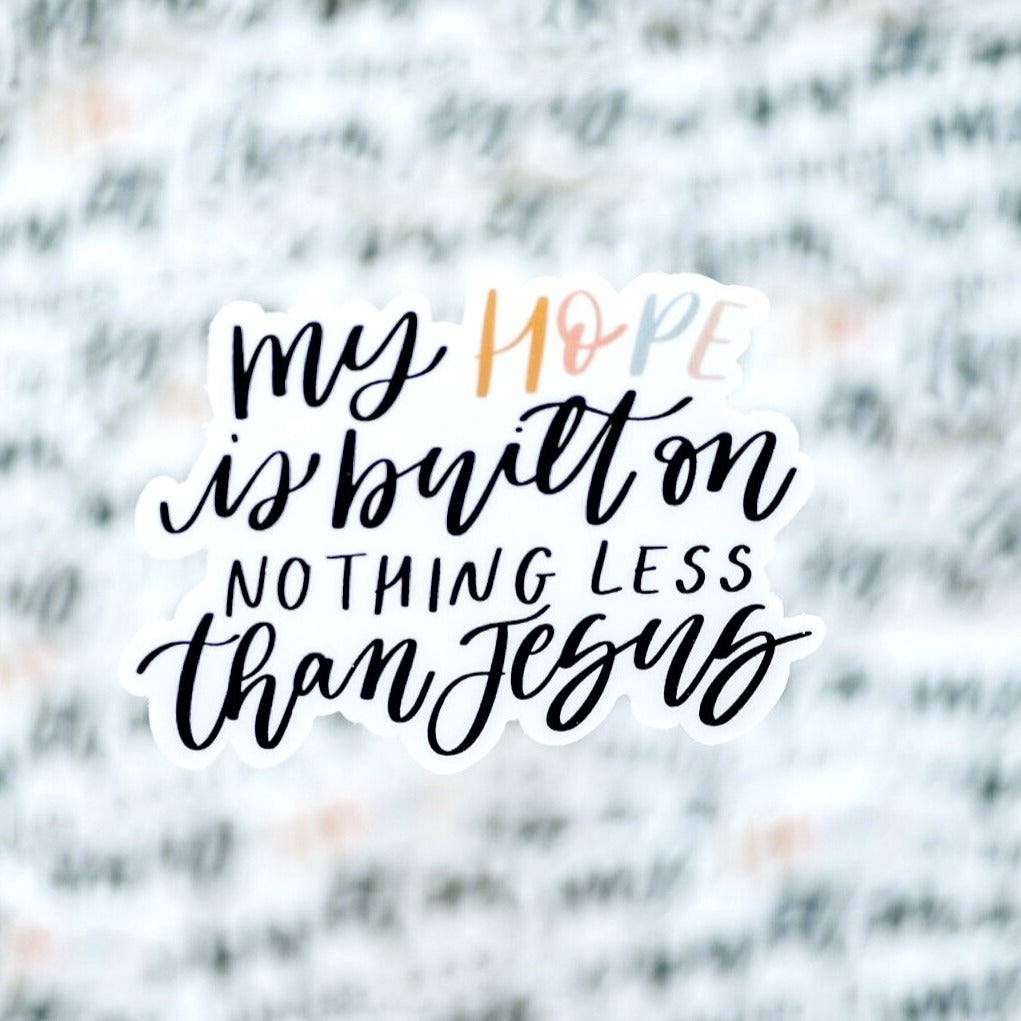 my HOPE
is built on
NOTHING LESS
than Jesus